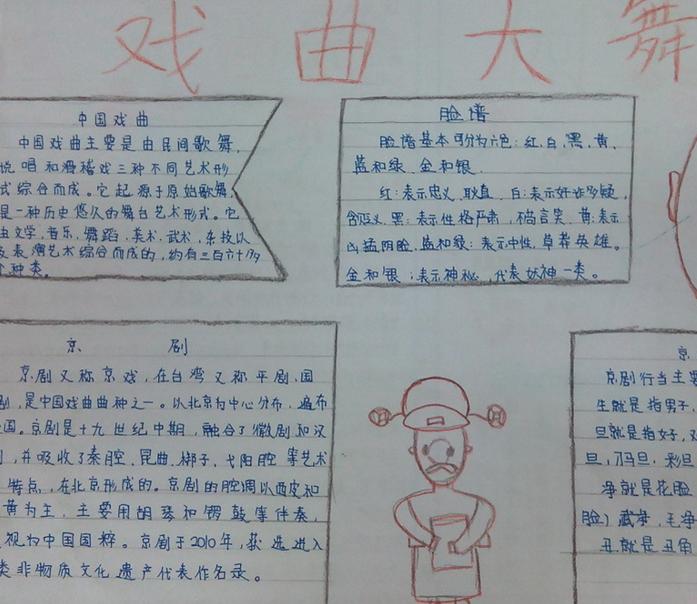 戏曲大舞
中国戏曲
中国戏曲主要是由民间歌舞、
说唱和滑稽戏三种不同艺术形
式综合而成。它起源于原始歌舞,
是一种历史悠久的舞台艺术形式。它
由文学、音乐、舞蹈、美术、武术、杂技以
及表演艺术综合而成的,约有三百六十多
个种类。
脸谱
脸谱基本可分为六色:红、白、黑、黄、
蓝和绿、金和银.
红:表示忠义、耿直、白:表示奸诈多疑,
含贬义、黑:表示性格严肃,不苟言笑、黄:表示
凶猛阴险、蓝和绿:表示中性,草莽英雄。
金和银:表示神秘,代表妖神一类。
京剧
京剧又称京戏,在台湾又称平剧、国
剧,是中国戏曲曲种之一。以北京为中心分布,遍布
全国。京剧是十九世纪中期,融合了徽剧和汉
剧,并吸收了秦腔、昆曲、梆子、弋阳腔等艺术
特点,在北京形成的。京剧的腔调以西皮和
黄为主,主要用胡琴和锣鼓等伴奏,
视为中国国粹。京剧于2010年,获选进入
类非物质文化遗产代表作名录。
京
京剧行当主要
生就是指男子,
旦就是指女子,
旦、刀马旦、彩旦
净就是花脸
脸)武净,毛净
丑就是丑角